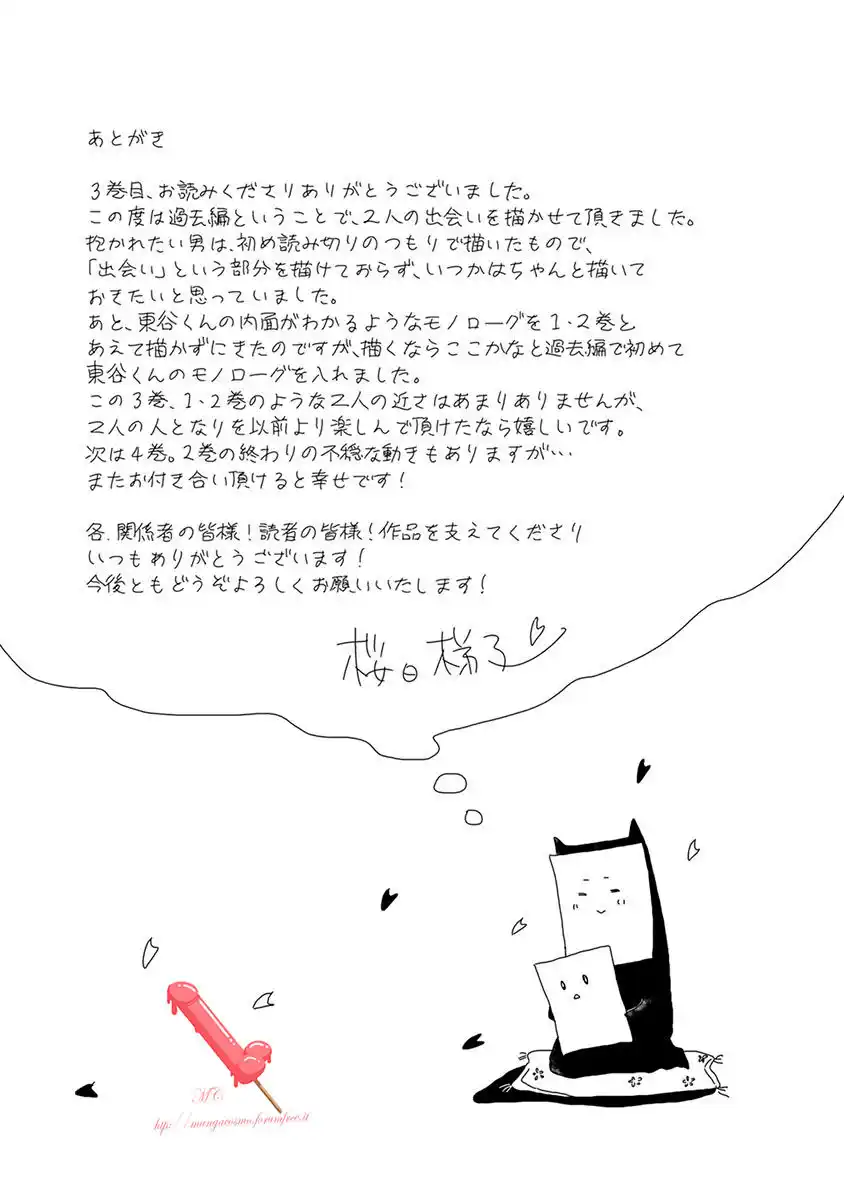 あとがき
3巻目、お読みくださりありがとうございました。
この度は過去編ということで、2人の出会いを描かせて頂きました。
抱かれたい男は、初め読み切りのつもりで描いたもので、
「出会い」という部分を描けておらず、いつかはちゃんと描いて
おきたいと思っていました。
あと、東谷くんの内面がわかるようなモノローグを1・2巻と
あえて描かずにきたのですが、描くならここかなと過去編で初めて
東谷くんのモノローグを入れました。
この3巻、1・2巻のような2人の近さはあまりありませんが、
2人の人となりを以前より楽しんで頂けたなら嬉しいです。
次は4巻。2巻の終わりの不穏な動きもありますが…
またお付き合い頂けると幸せです!
各.関係者の皆様!読者の皆様!作品を支えてくださり
いつもありがとうございます!
今後ともどうぞよろしくお願いいたします!
桜日梯子
MC
http://mangacosmo.forumfree.it